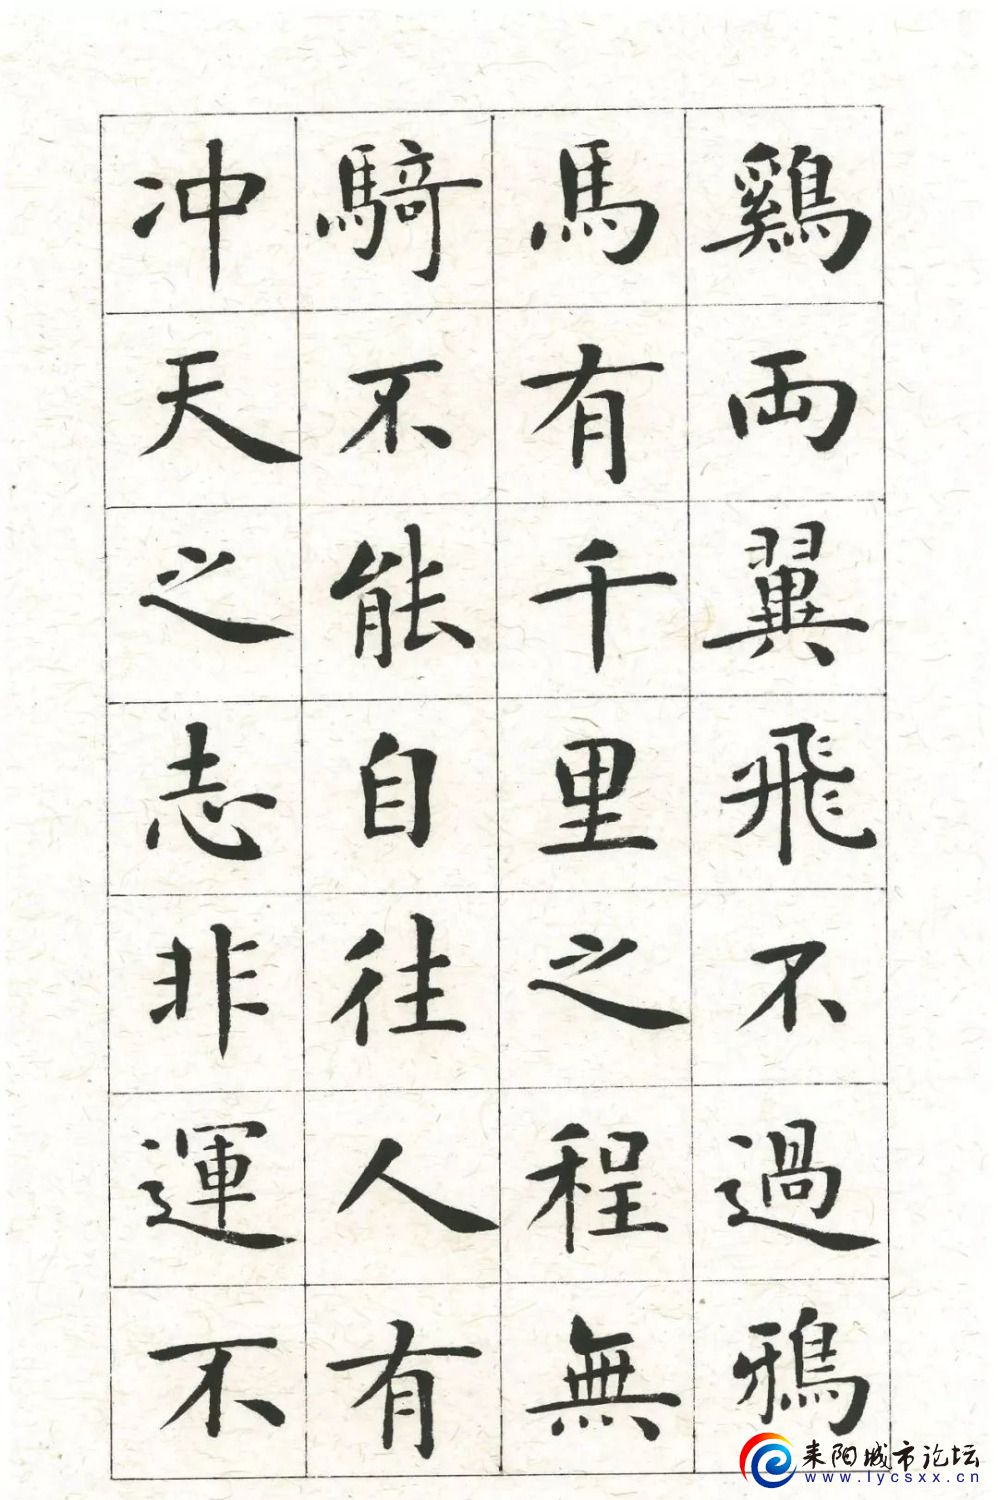 鷄両翼飛不過鴉
馬有千里之程無
騎不能自往人有
冲天之志非運不
耒阳城市论坛
www.lycsxx.cn